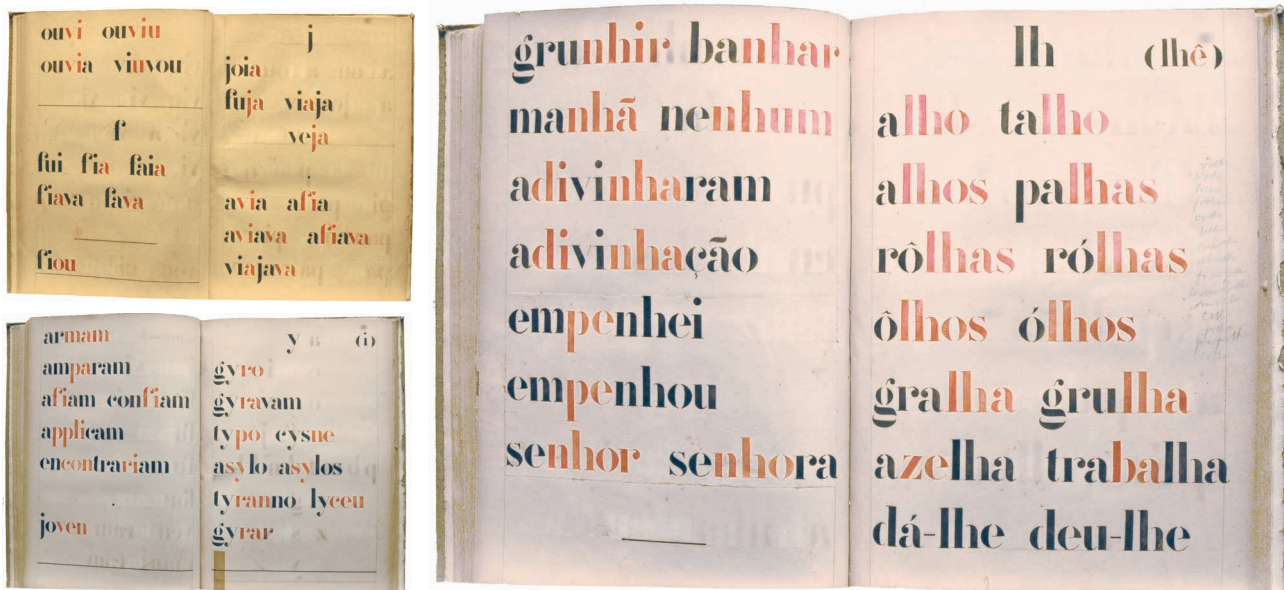 ouvi ouviu
ouvia viuvou
f
fui fia faia
fiava fava
fiou
j
joia
fuja viaja
veja
avia afia
aviava afiava
viajava
armam
amparam
afiam confiam
applicam
encontrariam
joven
y (i)
gyro
gyravam
typo cysne
asylo asylos
tyranno lyceu
gyrar
grunhir banhar
manhã nenhum
adivinharam
adivinhação
empenhei
empenhou
senhor senhora
lh (lhê)
alho talho
alhos palhas
rôlhas rólhas
ôlhos ólhos
gralha grulha
azelha trabalha
dá-lhe deu-lhe